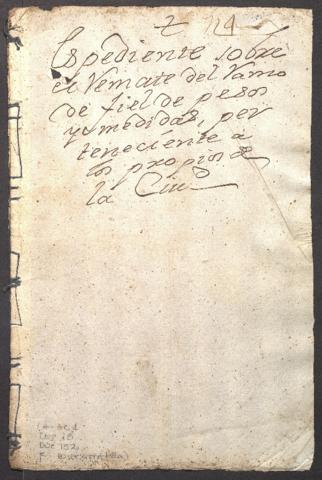 114
Espediente sobre
el Remate del Ramo
de fiel de pesos
y medidas, per
teneciente a
los propios de
la Ciud
Doc 152